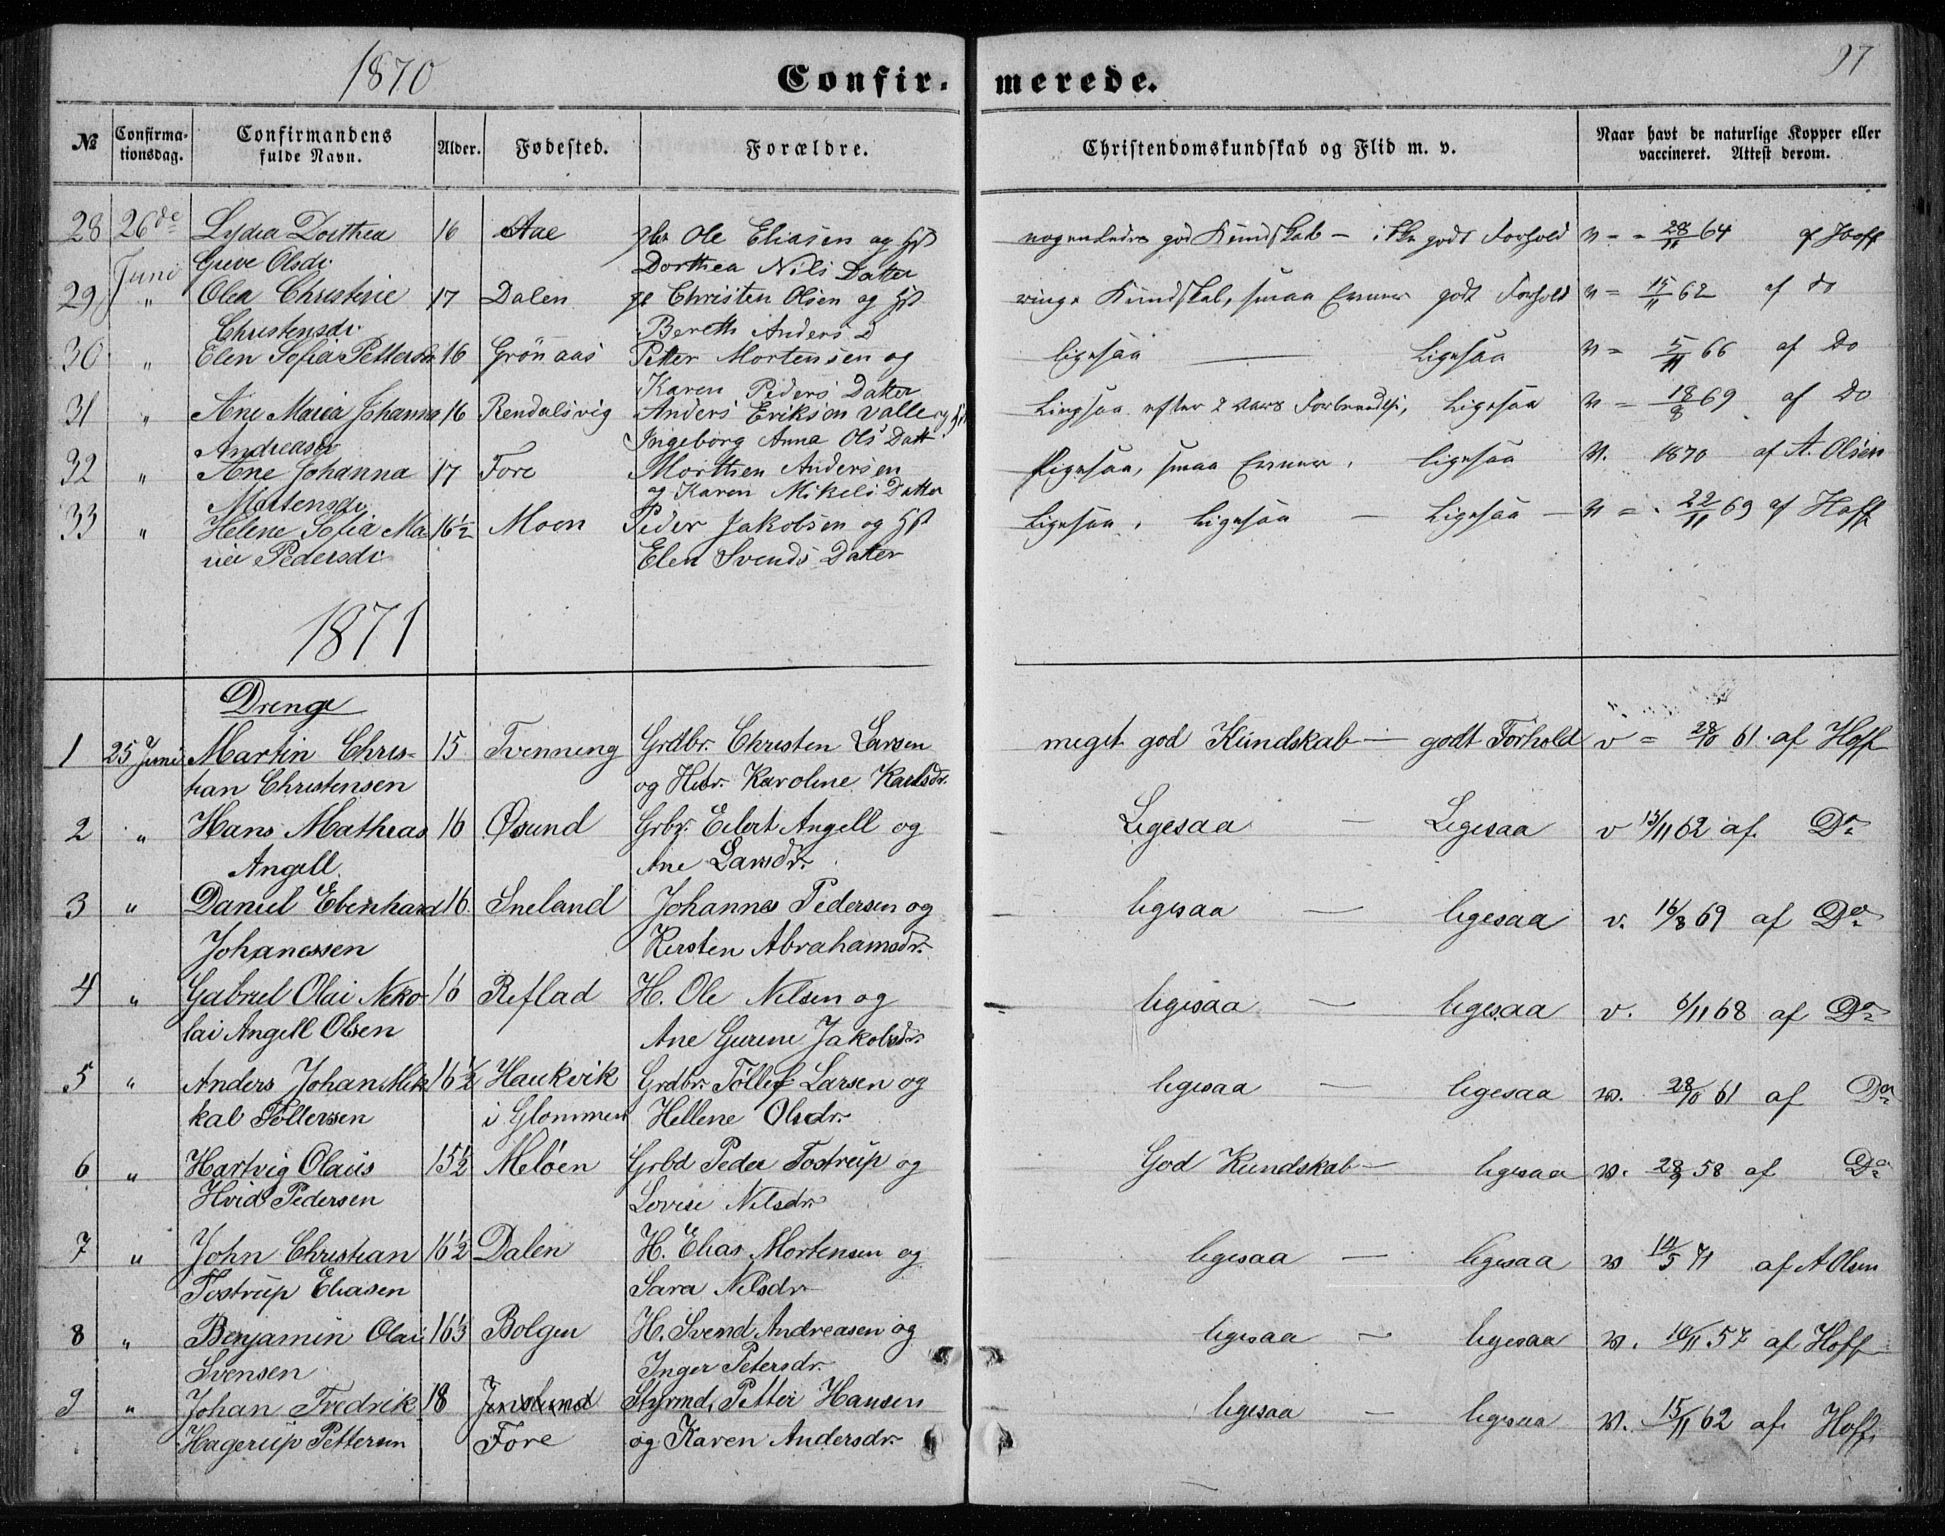 1870
Confirmerede.
97
№ Confirmationsdag. Confirmandens fulde Navn. Alder. Fødested. Forældre. Christendomskundskab og Flid m. v. Naar havt de naturlige Kopper eller vaccineret. Attest derom.
28 26de Juni Lydia Dorthea 16 Aae Ole Eliasen og Hst god Kundskab — ikke godt Forhold v = 28/11 64 af Hoff
Olsdr. Dorthea Nils Datter
29 " Olea Christine 17 Dalen Christen Olsen og Hst ringe Kundskab, smaa Evner godt Forhold v = 15/11 62 af Do
Christensdr. Bereth Anders D
30 " Elen Sofia Pettersdr 16 Grönaas Petter Mortensen og ligesaa — Ligesaa v = 5/11 66 af Do
Karen Peders Datter
31 " Ane Maria Johanna 16 Rendalsvig Anders Erikson Valle og Hst Ligesaa efter 2 Aars Forberedelse, Ligesaa v = 18/8 69 af Do
Andreasdr Ingeborg Anna Ols Datt
32 " Ane Johanna 17 Fore Morthen Andersen Ligesaa, smaa Evner, ligesaa v. 1870 af A. Olsen
Mortensdr. og Karen Mikels Datter
33 " Helene Sofia Ma- 16½ Moen Peder Jakobsen og Hst Ligesaa, ligesaa — Ligesaa — v = 22/11 69 af Hoff
rie Pedersdr. Elen Svends Datter
1871
Drenge
1 25 Juni Martin Chris- 15 Tvenning Grdbr. Christen Larsen meget god Kundskab — godt Forhold v = 28/10 61 af Hoff
tian Christensen og Hstr. Karoline Karlsdr.
2 " Hans Mathias 16 Øsund Grbr. Eilert Angell og Ligesaa — Ligesaa v 15/11 62 af Do
Angell. Ane Larsdr.
3 " Daniel Ebenhard 16 Sneland Johannes Pedersen og ligesaa — ligesaa v. 16/8 69 af Do
Johanessen Kirsten Abrahamsdr.
4 " Gabriel Olai Neko- 16 Reflad H. Ole Nilsen og ligesaa — ligesaa v. 6/11 68 af Do
lai Angell Olsen Ane Gurine Jakobsdr.
5 " Anders Johan Mik- 16½ Haukvik Grdbr. Töllef Larsen og ligesaa — ligesaa v. 28/10 61 af Do
kal Tollefsen i Glommen Hellene Olsdr.
6 " Hartvig Olaus 15½ Meløen Grbd Peder Tostrup og God Kundskab — ligesaa v. 28/9 58 af Do
Hvid Pedersen Lovise Nilsdr.
7 " John Christian 16½ Dalen H. Elias Mortensen og ligesaa — ligesaa v 14/5 71 af A Olsen
Tostrup Eliasen Sara Nilsdr.
8 " Benjamin Olai 16⅓ Bolgen H. Svend Andreasen og ligesaa — ligesaa v. 10/11 57 af Hoff
Svensen Inger Petersdr.
9 " Johan Fredrik 18 Styrmd, Petter Hansen ligesaa — ligesaa v. 15/11 62 af Hoff.
Hagerup Pettersen Fore og Karen Andersdr.